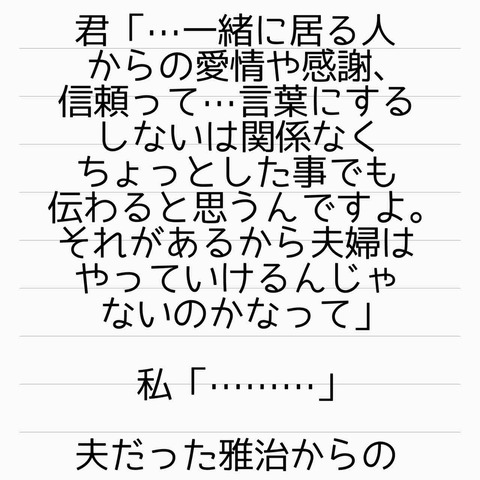 君「…一緒に居る人
からの愛情や感謝、
信頼って…言葉にする
しないは関係なく
ちょっとした事でも
伝わると思うんですよ。
それがあるから夫婦は
やっていけるんじゃ
ないのかなって」
私「………」
夫だった雅治からの